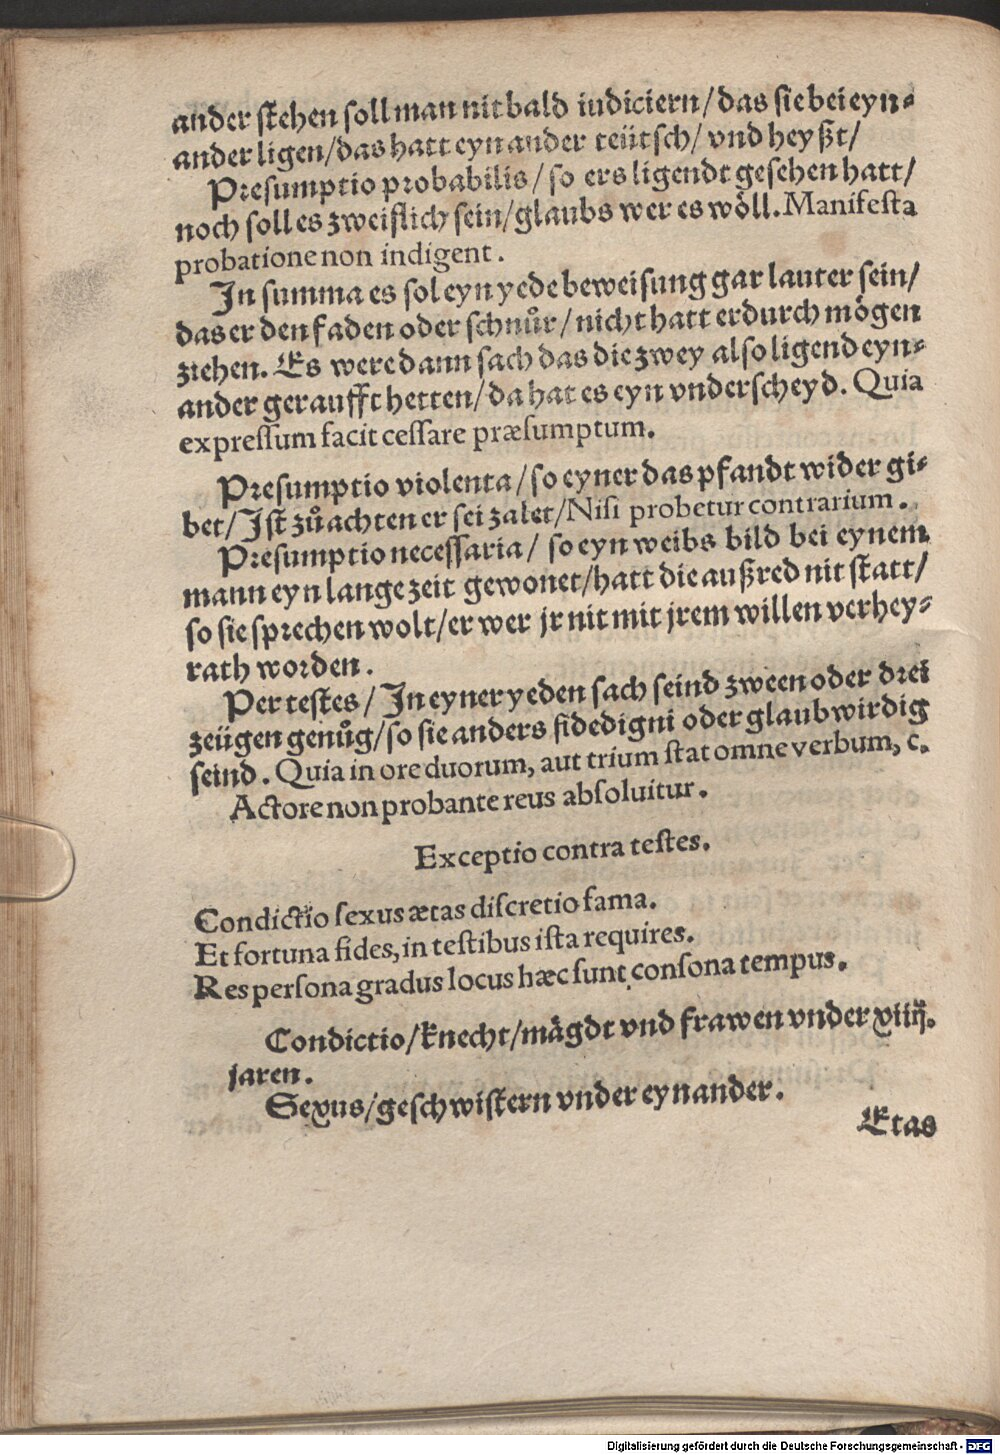 ander stehen soll man nit bald iudiciern/das sie bei eyn⸗
ander ligen/das hatt eyn ander teütsch/ vnd heyßt/
Presumptio probabilis/so ers ligendt gesehen hatt/
noch soll es zweiflich sein/glaubs wer es wöll. Manifesta
probatione non indigent.
In summa es sol eyn yede beweisung gar lauter sein/
das er den faden oder schnůr/nicht hatt erdurch mögen
ziehen. Es were dann sach das die zwey also ligend eyn⸗
ander geraufft hetten/da hat es eyn vnderscheyd. Quia
expressum facit cessare præsumptum.
Presumptio violenta/so eyner das pfandt wider gi⸗
bet/Ist zůachten er sei zalet/Nisi probetur contrarium.
Presumptio necessaria/ so eyn weibs bild bei eynem
mann eyn lange zeit gewonet/hatt die außred nit statt/
so sie sprechen wolt/er wer jr nit mit jrem willen verhey⸗
rath worden.
Per testes/ In eyner yeden sach seind zween oder drei
zeügen genůg/so sie anders fidedigni oder glaubwirdig
seind. Quia in ore duorum, aut trium stat omne verbum, c.
Actore non probante reus absoluitur.
Exceptio contra testes.
Condictio sexus ætas discretio fama.
Et fortuna fides, in testibus ista requires.
Res persona gradus locus hæc sunt consona tempus.
Condictio/knecht/mägdt vnd frawen vnder xiiij.
jaren.
Sexus/geschwistern vnder eynander.
Etas
Digitalisierung gefördert durch die Deutsche Forschungsgemeinschaft - DFG